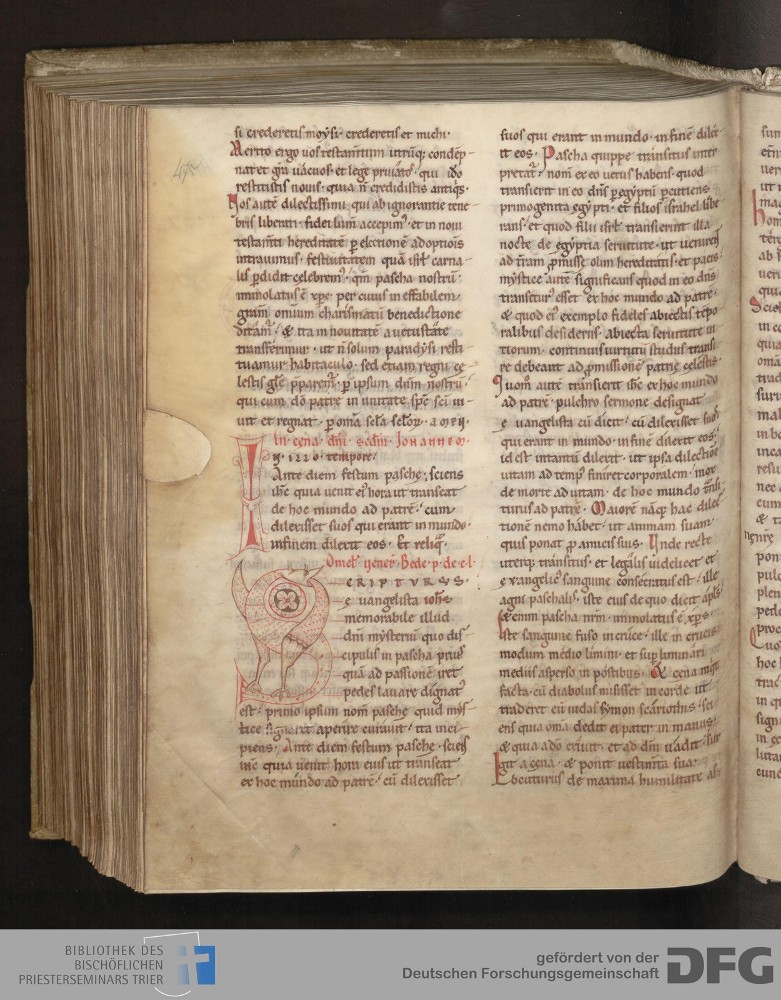 si crederetis moysi· crederetis et michi·
Merito ergo uos testamtum utrūq; condēp-
nat et grā uacuos· et lege priuatos· qui ido
restitistis nouis· quia n̄ credidistis antiqs·
Nos autē dilectissimi· qui ab ignorantie tene-
bris liberati· fidei lum̄ accepim⁹· et in noui
testamti hereditatē p electionē adoptiois
intrauimus· festiuitatem quā isrl carna-
lis pdidit celebrem⁹· qm̄ pascha nostrū·
immolatus ē xpc· per cuius ineffabilem
gratiam omnium charismatū benedictione
ditam̄· & ita in nouitatē a uetustate
transferimur· ut n̄ solum paradysi resti
tuamur habitaculo· sed etiam regni ce-
lestis glē pparem̄· p ipsum dnm nostrū·
qui cum dō patre in unitate spc sci ui-
uit et regnat· p omīa scla sclor· amen·
In cena dni· scdm· Iohannem·
In illo tempore·
Ante diem festum pasche· sciens
ihc quia uenit ei⁹ hora ut transeat
de hoc mundo ad patrē· cum
dilexisset suos qui erant in mundo·
in finem dilexit eos· Et reliq·
Omel· uener· Bede p· de el·
SCRIPTURUS·
euangelista iohs
memorabile illud
dni mysteriū quo dis-
cipulis in pascha prius
quā ad passionē iret
pedes lauare dignat⁹
est· primo ipsum nom̄ pasche quid mys-
tice signaret aperire curauit· ita inci-
piens· Ante diem festum pasche· sciens
ihc quia uenit hora eius ut transeat
ex hoc mundo ad patrē· cū dilexisset
suos qui erant in mundo· in finē dilex-
it eos· Pascha quippe transitus inter
pretat⁹· nom̄ ex eo uetus habens· quod
transierit in eo dns p egyptū pcutiens
primogenita egypti· et filios israhel libe
rans· et quod filii isrl transierint illa
nocte de egyptia seruitute· ut uenirent
ad tram pmisse olim hereditatis· et pacis·
mystice autē significans quod in eo dns
transitur⁹ esset ex hoc mundo ad patrē·
& quod ei⁹ exemplo fideles abiectis tepo
ralibus desideriis· abiecta seruitute ui
tiorum· continuis uirtutū studiis transi-
re debeant ad pmissionē patrie celestis·
Quom̄ autē transierit ihc ex hoc mundo
ad patrē· pulchro sermone designat
euangelista cū dicit· cū dilexisset suos
qui erant in mundo· in finē dilexit eos·
id est intantū dilexit· ut ipsa dilectioē
uitam ad temp⁹ finiret corporalem· mox
de morte ad uitam· de hoc mundo transi-
turus ad patrē· Maiorē naq; hac dilec-
tionē nemo habet· ut animam suam
quis ponat p amicis suis· Unde recte
uterq; transitus· et legalis uidelicet et
euangelic⁹ sanguine consecratus est· ille
agni paschalis· iste eius de quo dicit apls·
Etenim pascha nrm· immolatus ē xps·
Iste sanguine fuso in cruce· ille in crucis
modum medio limini· et supliminari
mediis asperso in postibus· Et cena inqt
facta· cū diabolus misisset in corde ut
traderet eū iudas symon scariothis· sci-
ens quia omīa dedit ei pater in manus·
& quia a dō exiuit· et ad dm̄ uadit· sur-
git a cena· & ponit uestimta sua·
Locuturus de maxima humilitate as
BIBLIOTHEK DES
BISCHÖFLICHEN
PRIESTERSEMINARS TRIER
gefördert von der
Deutschen Forschungsgemeinschaft
DFG